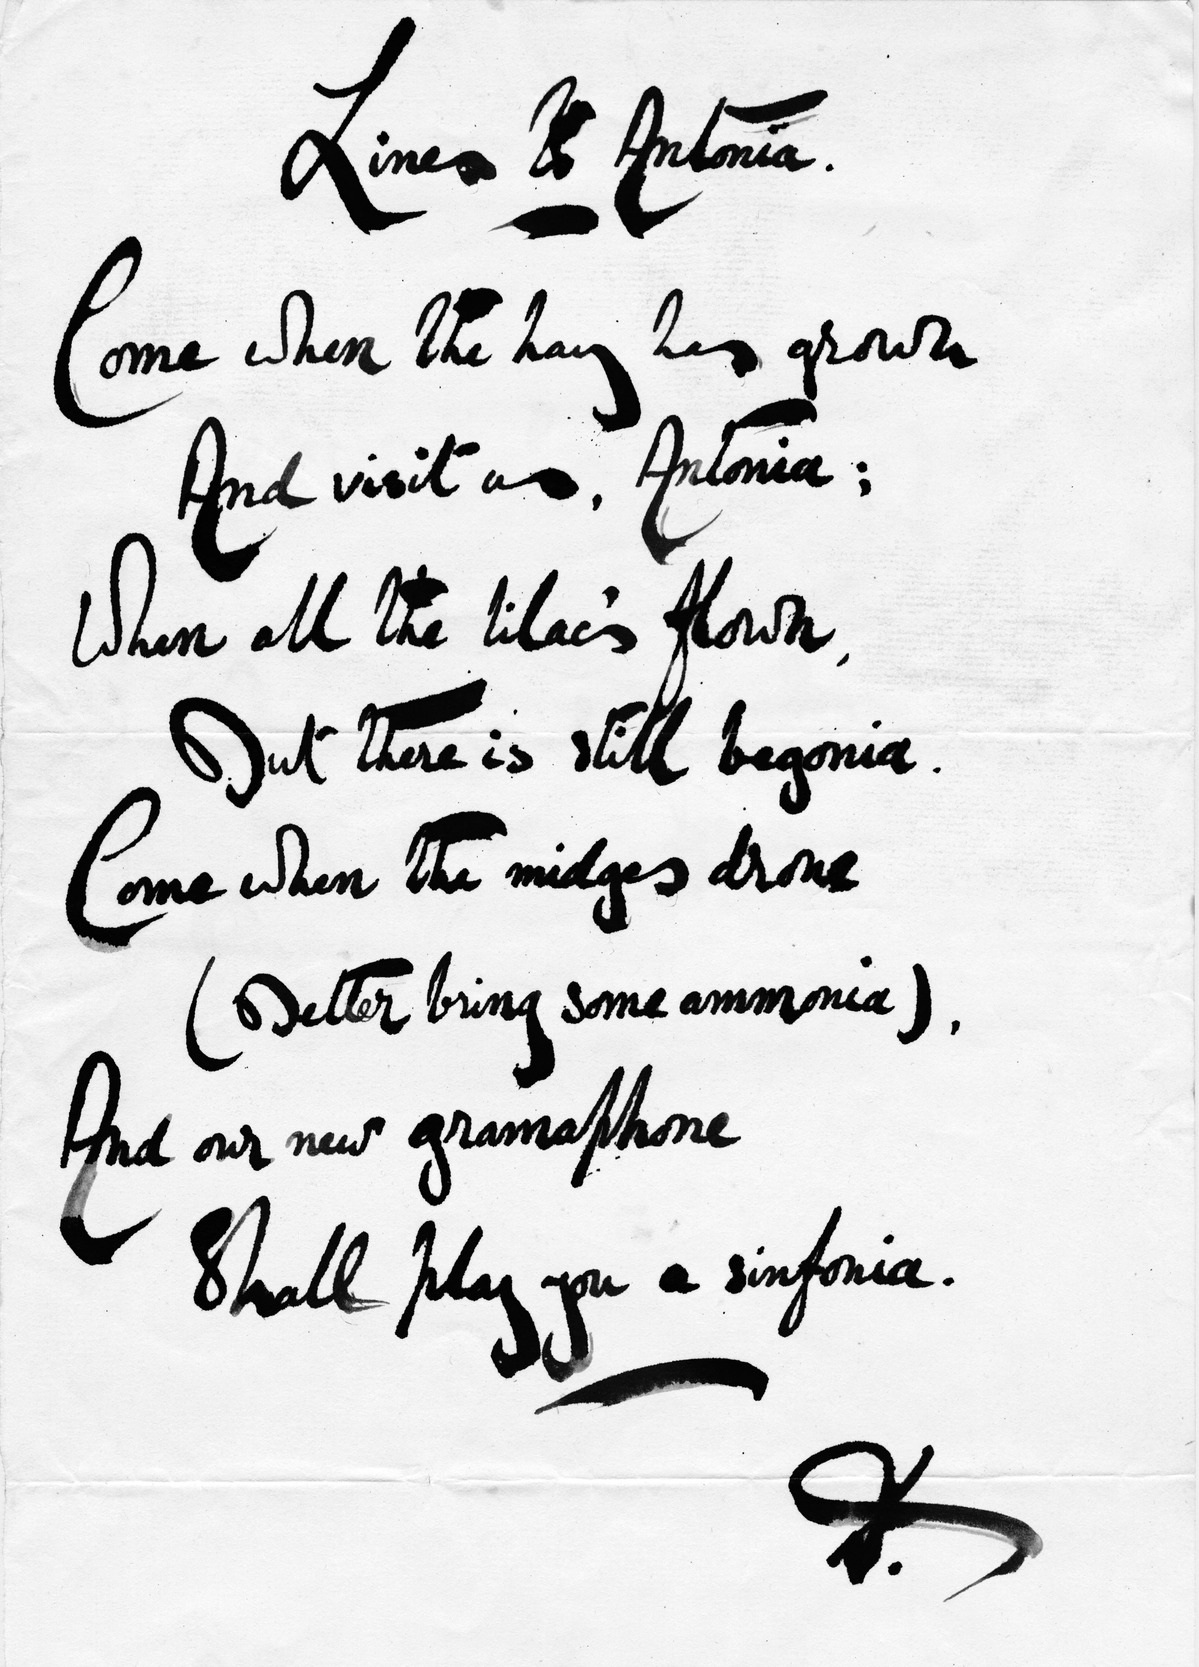 Lines to Antonia.
Come when the hay has grown
And visit us, Antonia;
When all the lilac's flown,
But there is still begonia.
Come when the midges drone
(Better bring some ammonia),
And our new gramaphone
Shall play you a sinfonia.